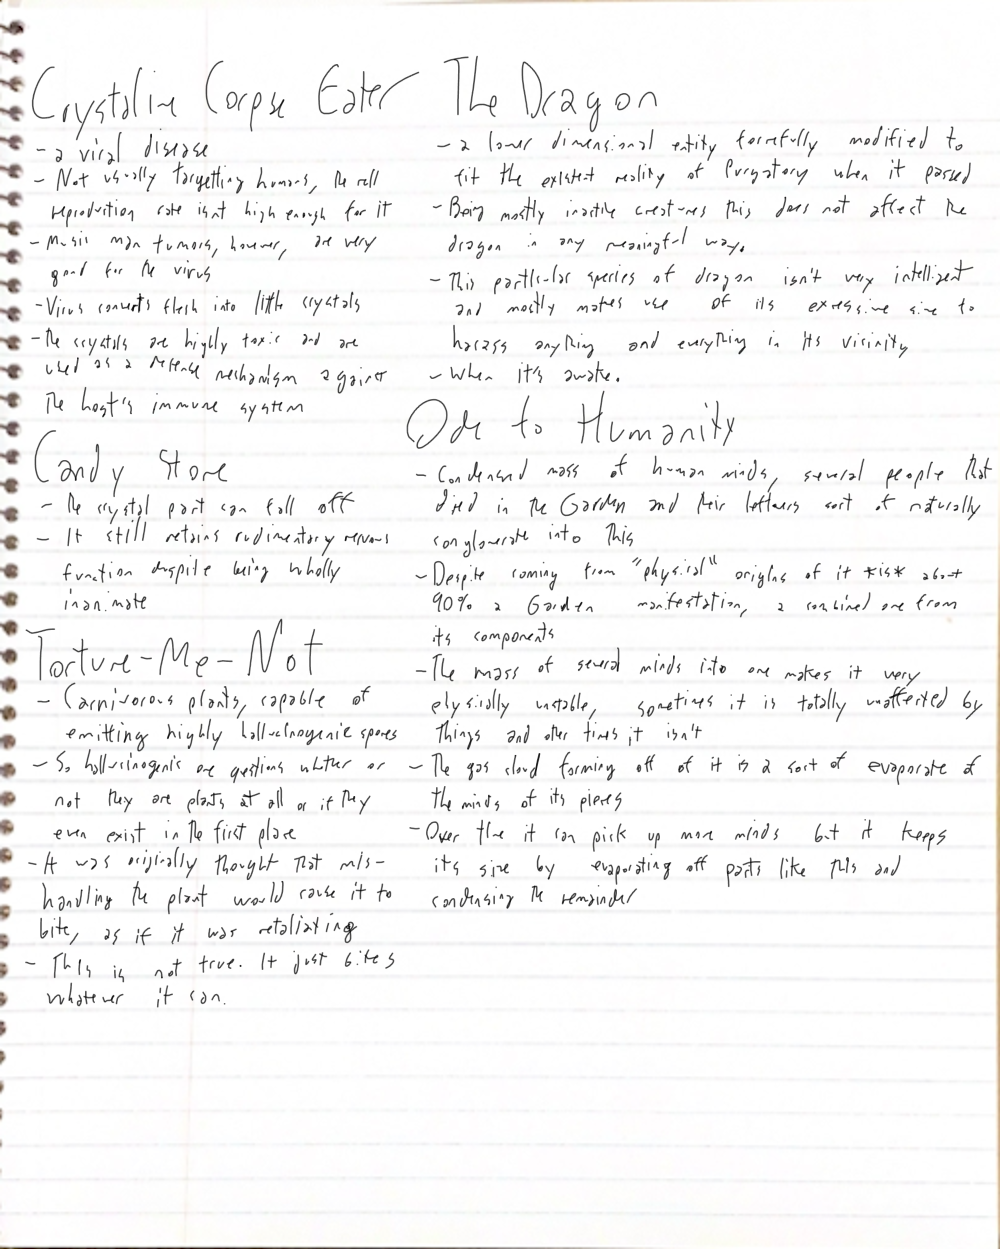 Crystaline Corpse Eater
- a viral disease
- Not usually targetting humans, the cell
reproduction rate isnt high enough for it
- Music man tumors, however, are very
good for the virus
- Virus converts flesh into little crystals
- The crystals are highly toxic and are
used as a defense mechanism against
the host's immune system
Candy Store
- The crystal part can fall off
- It still retains rudimentary nervous
function despite being wholly
inanimate
Torture-Me-Not
- Carnivorous plants, capable of
emitting highly hallucinogenic spores
- So hallucinogenic are questions whether or
not they are plants at all or if they
even exist in the first place
- It was originally thought that mis-
handling the plant would cause it to
bite, as if it was retaliating
- This is not true. It just bites
whatever it can.
The Dragon
- a lower dimensional entity forcefully modified to
fit the existent reality of Purgatory when it passed
- Being mostly inactive creatures this does not affect the
dragon in any meaningful way.
- This particular species of dragon isn't very intelligent
and mostly makes use of its excessive size to
harass anything and everything in its vicinity
- When it's awake.
Ode to Humanity
- Condensed mass of human minds, several people that
died in the Garden and their leftovers sort of naturally
conglomerate into this
- Despite coming from "physical" origins of it *is* about
90% a Garden manifestation, a combined one from
its components
- The mass of several minds into one makes it very
physically unstable, sometimes it is totally unaffected by
things and other times it isn't
- The gas cloud forming off of it is a sort of evaporate of
the minds of its pieces
- Over time it can pick up more minds but it keeps
its size by evaporating off parts like this and
condensing the remainder